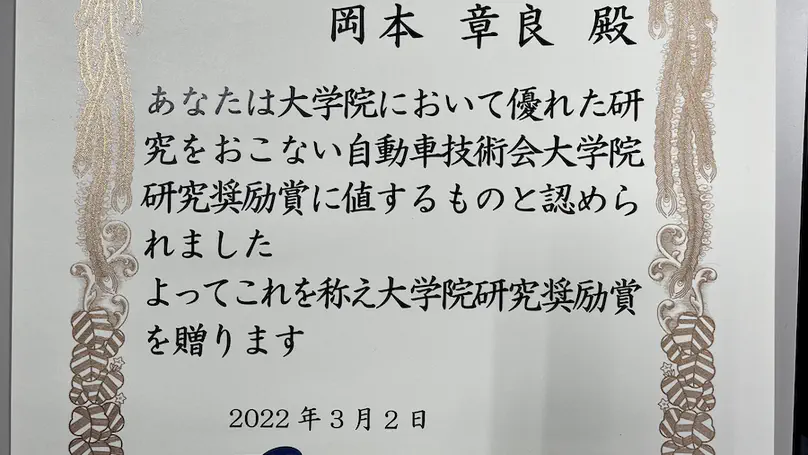 岡本 章良 殿
あなたは大学院において優れた研
究をおこない自動車技術会大学院
研究奨励賞に値するものと認めら
れました
よってこれを称え大学院研究奨励賞
を贈ります
2022年3月2日